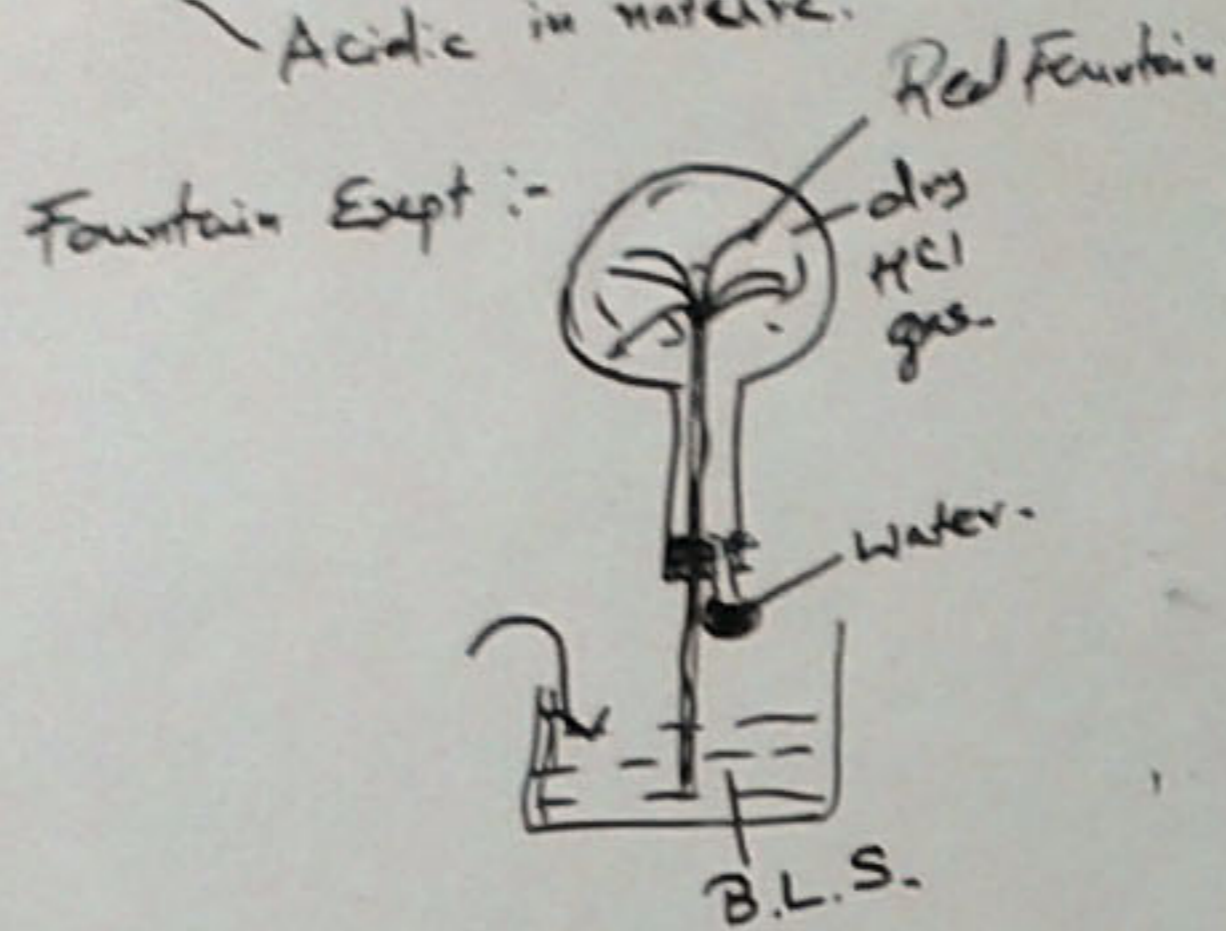 Acidic in nature.
Red Fountain
Fountain Expt :-
dry
HCl
gas.
Water.
B.L.S.